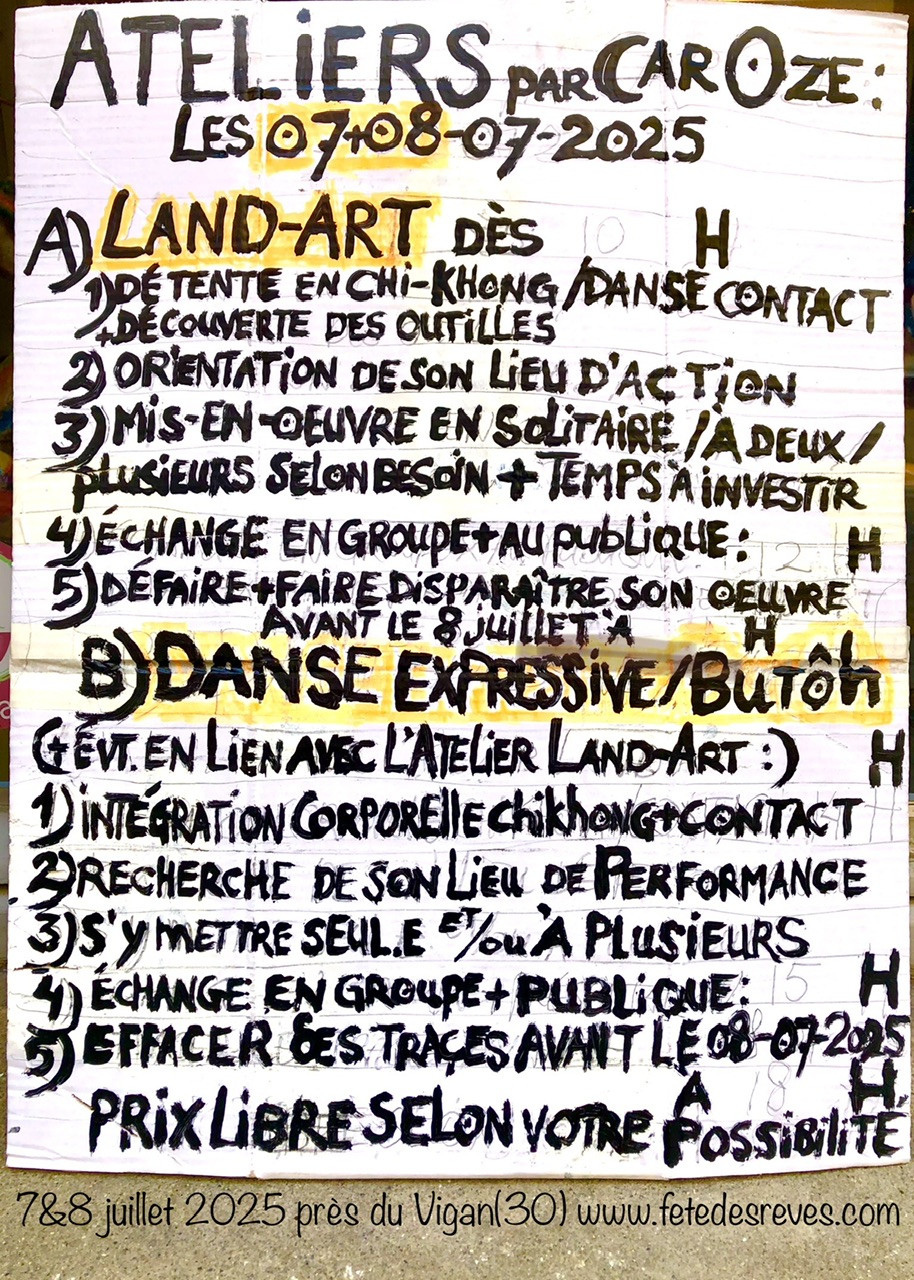 ATELiERS PAR CAROZE:
LES 07+08-07-2025
A) LAND-ART DÈS 10 H
1) DÉTENTE EN CHi-KHONG / DANSE CONTACT
+ DÉCOUVERTE DES OUTiLLES
2) ORiENTATiON DE SON LiEU D'ACTiON
3) MiS-EN-OEUVRE EN SOLiTAiRE / À DEUX /
PLUSiEURS SELON BESOiN + TEMPS À iNVESTiR
4) ÉCHANGE EN GROUPE + AU PUBLiQUE: 12 H
5) DÉFAiRE + FAiRE DiSPARAÎTRE SON OEUVRE
AVANT LE 8 JUiLLET À H
B) DANSE EXPRESSiVE / BUTÔH
(+ ÉVT. EN LiEN AVEC L'ATELiER LAND-ART :) H
1) iNTÉGRATiON CORPORElle chikhong + CONTACT
2) RECHERCHE DE SON LiEU DE PERFORMANCE
3) S'Y METTRE SEUL.E ET/OU À PLUSiEURS
4) ÉCHANGE EN GROUPE + PUBLiQUE: 15 H
5) EFFACER SES TRAÇES AVANT LE 08-07-2025
À 18 H
PRiX LiBRE SELON VOTRE POSSiBiLiTÉ
7&8 juillet 2025 près du Vigan(30) www.fetedesreves.com